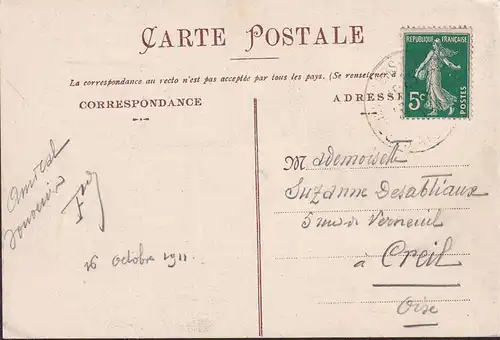 CARTE POSTALE
La correspondance au recto n'est pas acceptée par tous les pays. (Se renseigner à
CORRESPONDANCE
ADRESSE
REPUBLIQUE FRANÇAISE
5c
POSTES
Amical
Souvenir
16 octobre 1911
Mademoiselle
Suzanne Desabliaux
5 rue de Verneuil
à Creil
Oise